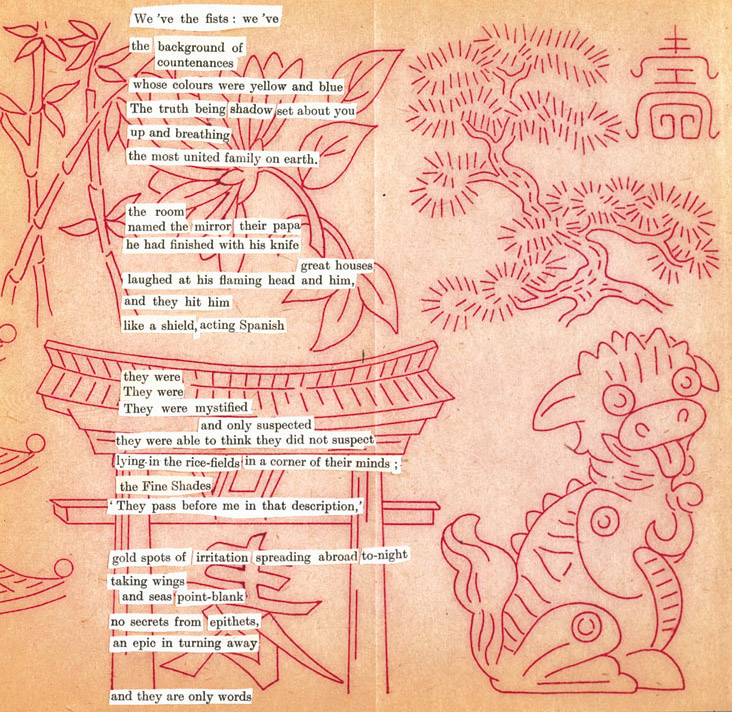 We 've the fists : we 've
the background of
countenances
whose colours were yellow and blue
The truth being shadow set about you
up and breathing
the most united family on earth.
the room
named the mirror their papa
he had finished with his knife
great houses
laughed at his flaming head and him,
and they hit him
like a shield, acting Spanish
they were
They were
They were mystified
and only suspected
they were able to think they did not suspect
lying in the rice-fields in a corner of their minds ;
the Fine Shades
' They pass before me in that description,'
gold spots of irritation spreading abroad to-night
taking wings
and seas point-blank
no secrets from epithets,
an epic in turning away
and they are only words